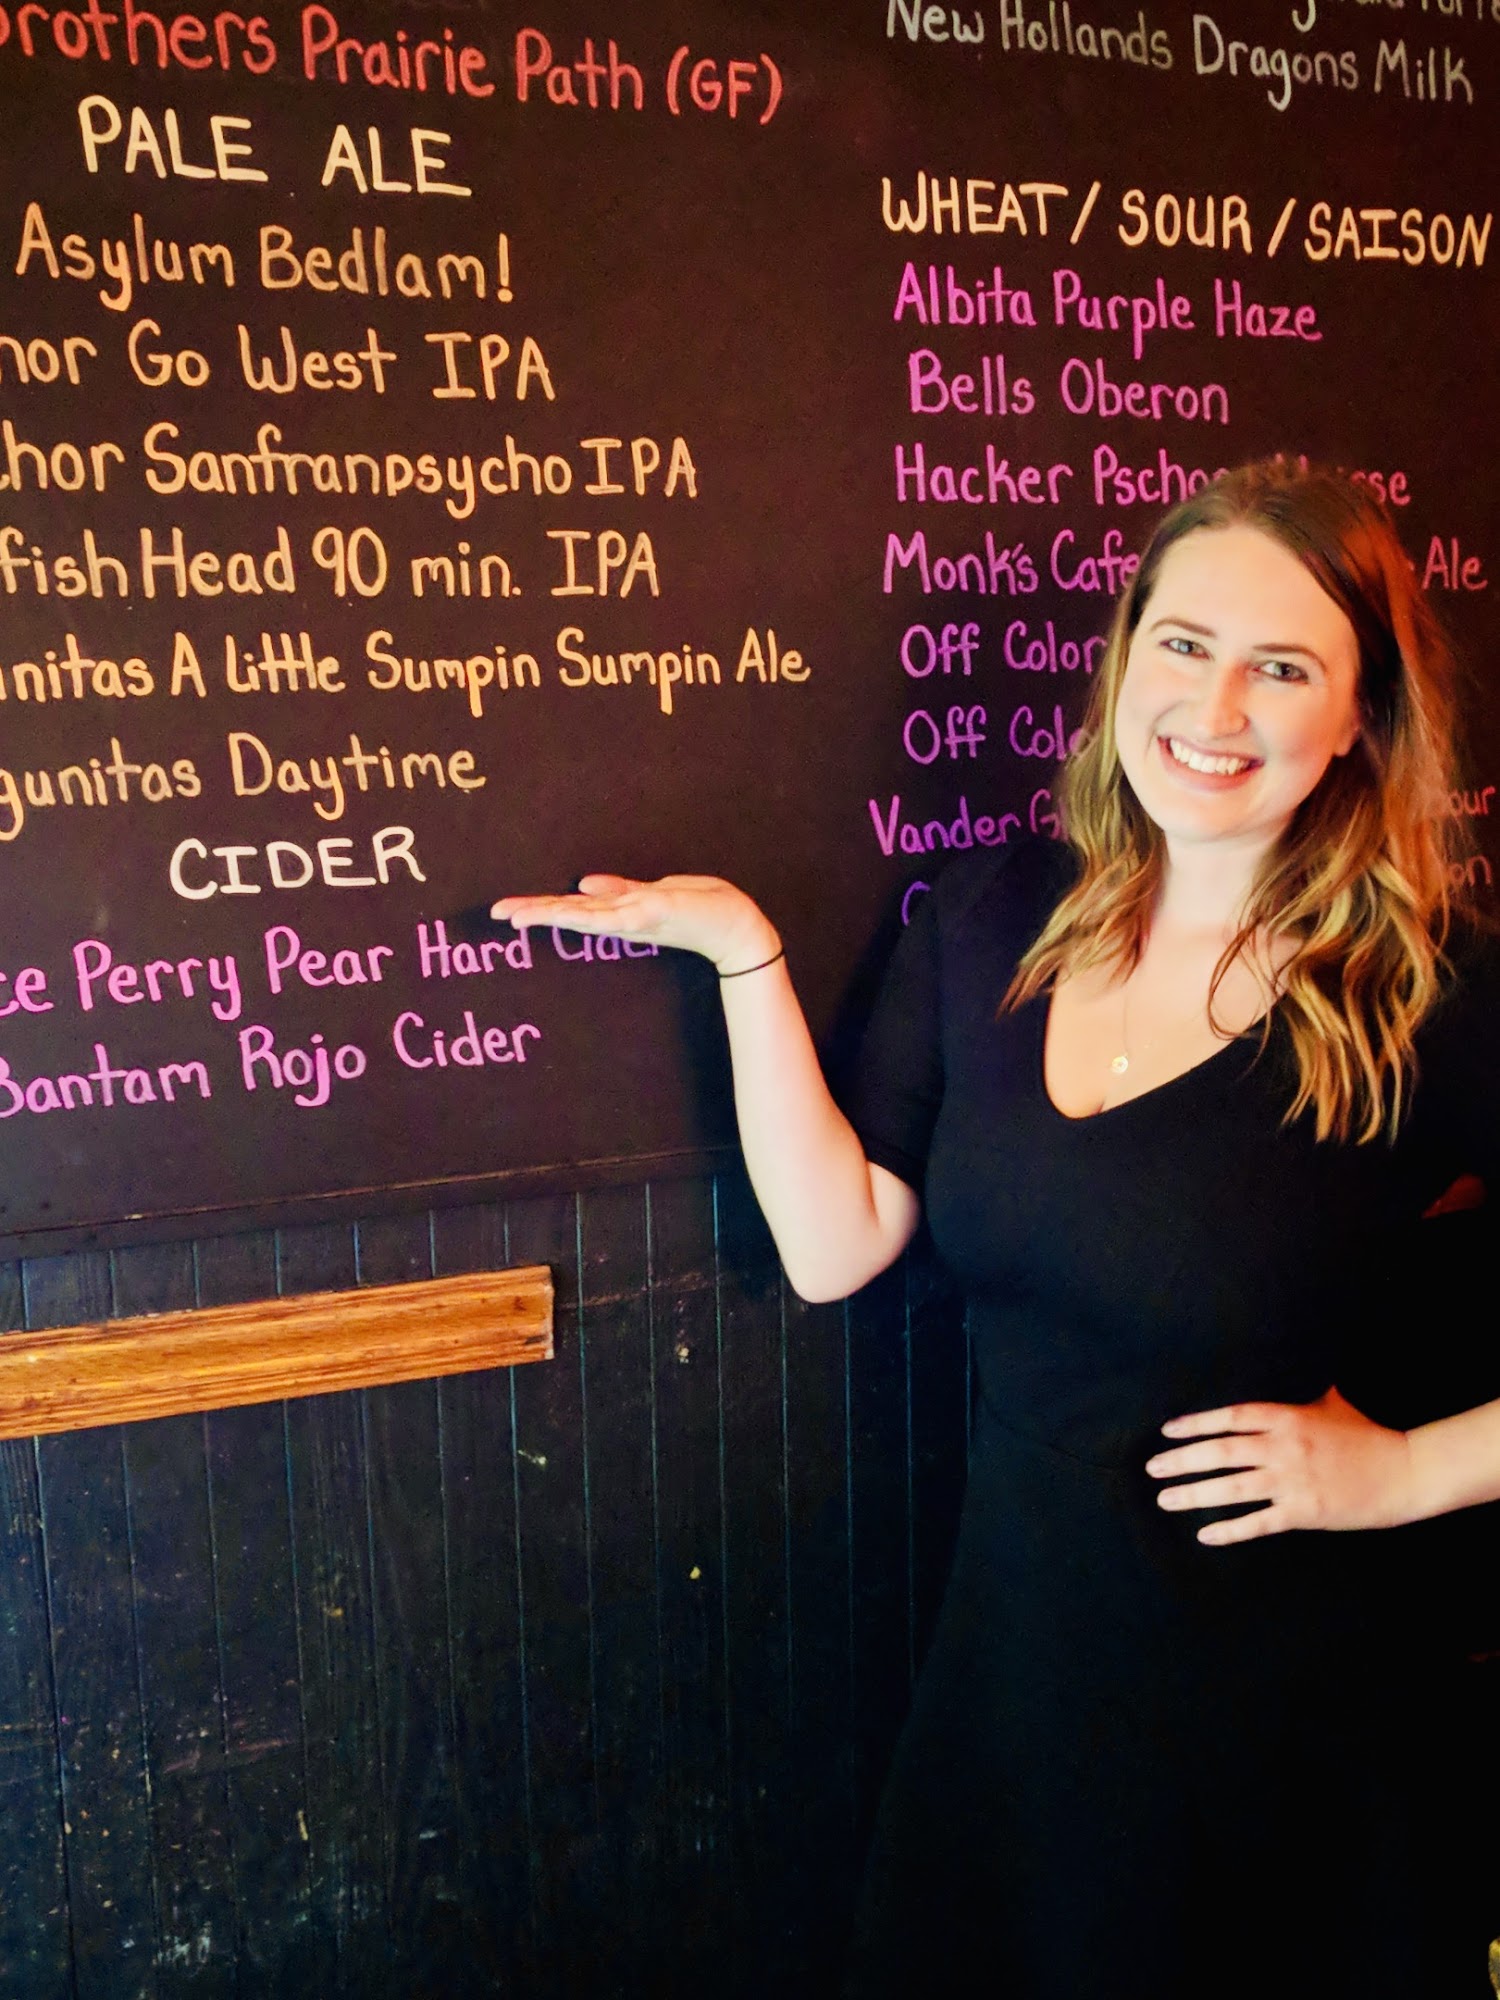 Prairie Path (GF)
PALE ALE
Asylum Bedlam!
Go West IPA
Sanfranpsycho IPA
Head 90 min. IPA
A Little Sumpin Sumpin Ale
Daytime
CIDER
Perry Pear Hard Cider
Bantam Rojo Cider
New Hollands Dragons Milk
WHEAT / SOUR / SAISON
Albita Purple Haze
Bells Oberon
Hacker
Monk's Cafe Ale
Off Color
Off
Vander